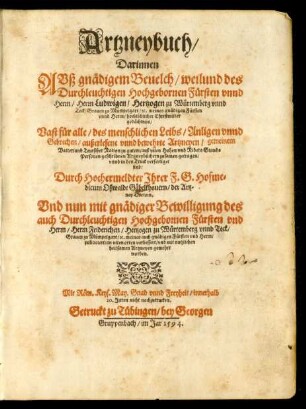 Artzneybuch/
Darinnen
Auß gnädigem Beuelch/ weilund des
Durchleuchtigen Hochgebornen Fürsten vnnd
Herrn/ Herrn Ludwigen/ Hertzogen zu Würtemberg vnnd
Teck/ Grauen zu Mümpelgart/ etc. meines gnädigen Fürsten
vnnd Herrn/ hochlöblicher Christmilter
gedächtnus/
Vast für alle/ des menschlichen Leibs/ Anligen vnnd
Gebrechen/ außerlesene vnnd bewehrte Artzneyen/ gemeinem
Vatterland Teutscher Nation zu gutem/ auß vilen Hohen vnd Nidern Stands
Personen geschribenen Artzneybüchern zusamen getragen/
vnnd in den Truck verfertiget
sind
Durch Hochermeldter Ihrer F. G. Hofmedicum
Oßwaldt Gäbelkhouern/ der Artzney
Doctorn.
Vnd nun mit gnädiger Bewilligung des
auch Durchleuchtigen Hochgebornen Fürsten vnd
Herrn/ Herrn Friderichen/ Hertzogen zu Würtemberg vnnd Teck/
Grauen zu Mümpelgart/ etc. meines auch gnädigen Fürsten vnd Herrn/
vnd mit nutzlichen
heilsamen Artzneyen gemehrt
worden.
Mit Röm. Key. May. Gnad vnnd Freyheit/ innerhalb
10. Jaren nicht nachzutrucken.
Getruckt zu Tübingen/ bey Georgen
Gruppenbach/ im Jar 1594.